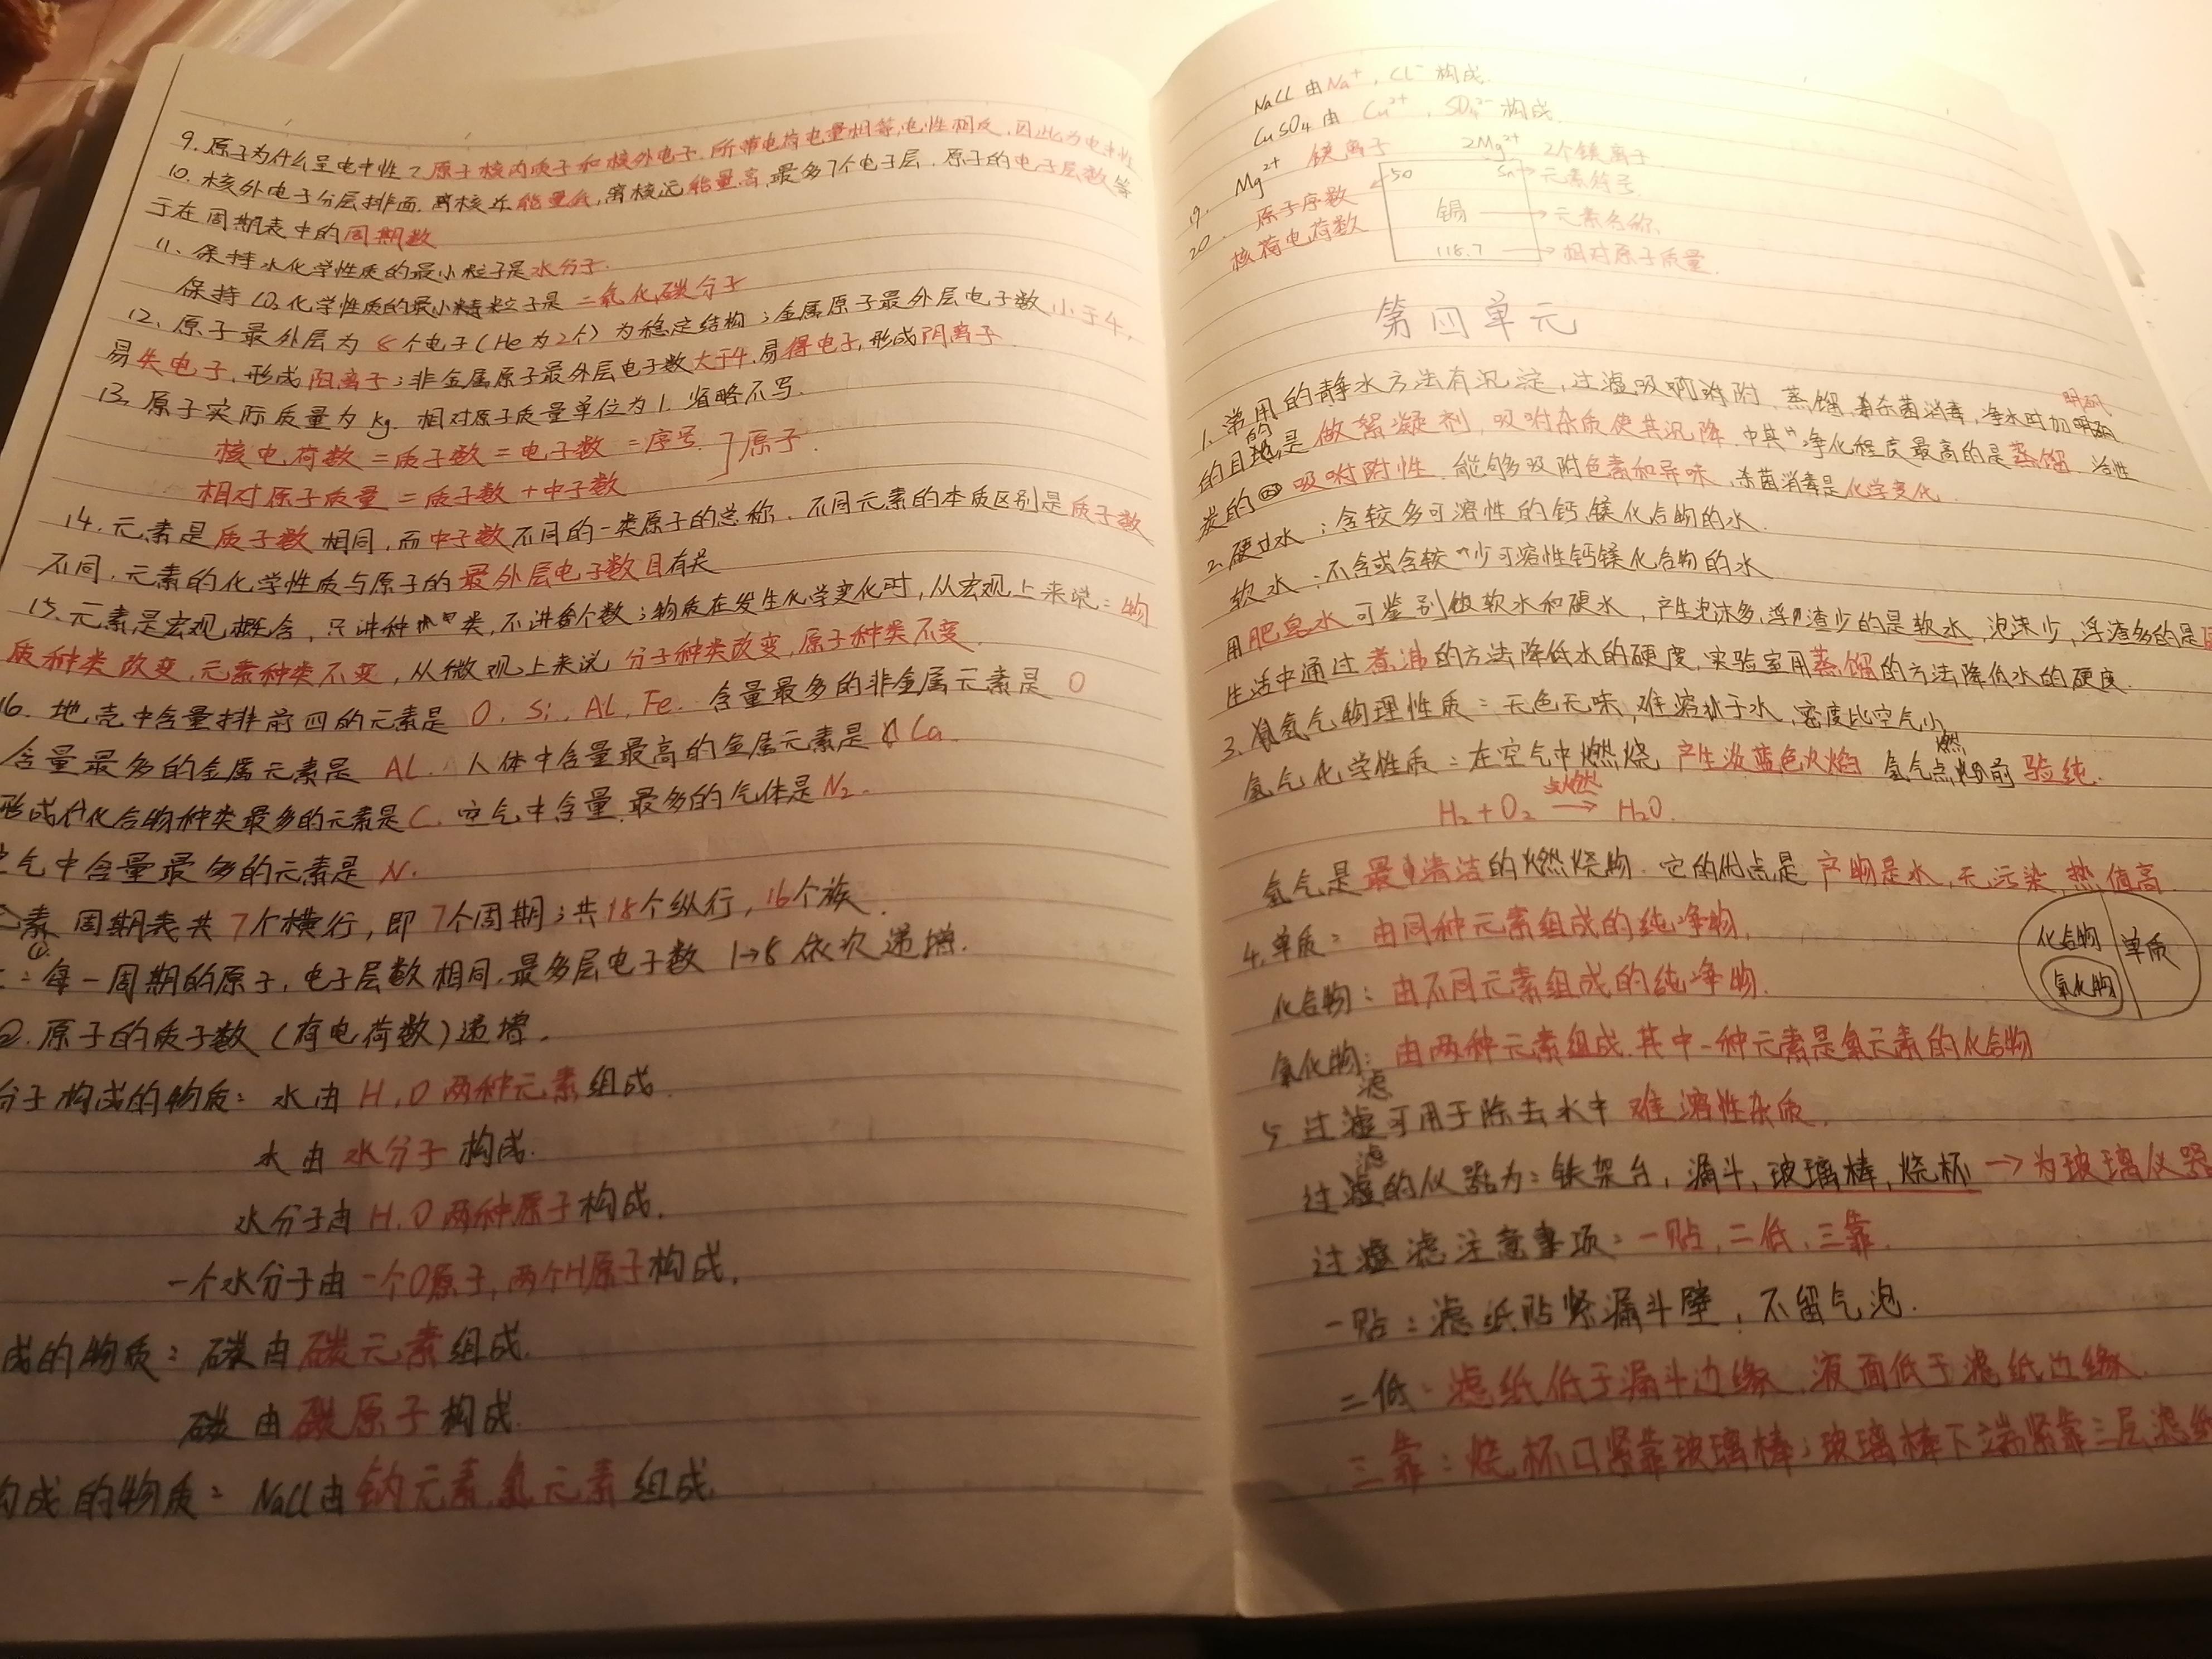 9. 原子为什么呈电中性？原子核内质子和核外电子，所带电荷电量相等，电性相反，因此为电中性
10. 核外电子分层排面，离核近能量低，离核远能量高，最多7个电子层，原子的电子层数等
于在周期表中的周期数
11、保持水化学性质的最小粒子是水分子.
保持CO₂化学性质的最小粒子是二氧化碳分子
12、原子最外层为8个电子(He为2个)为稳定结构；金属原子最外层电子数小于4，
易失电子，形成阳离子；非金属原子最外层电子数大于4，易得电子，形成阴离子.
13、原子实际质量为kg. 相对原子质量单位为1. 省略不写.
核电荷数=质子数=电子数=序号 ]原子.
相对原子质量=质子数+中子数
14. 元素是质子数相同，而中子数不同的一类原子的总称. 不同元素的本质区别是质子数
不同，元素的化学性质与原子的最外层电子数目有关
15、元素是宏观概念，只讲种类，不讲个数；物质在发生化学变化时，从宏观上来说：物
质种类改变，元素种类不变，从微观上来说分子种类改变，原子种类不变.
16. 地壳中含量排前四的元素是 O. Si. Al. Fe. 含量最多的非金属元素是 O
含量最多的金属元素是 Al. 人体中含量最高的金属元素是Ca.
形成化合物种类最多的元素是C. 空气中含量最多的气体是N₂.
气中含量最多的元素是N.
素周期表共7个横行，即7个周期；共18个纵行，16个族.
：①每一周期的原子，电子层数相同，最多层电子数1→8依次递增.
②. 原子的质子数(荷电荷数)递增.
分子构成的物质：水由H、O两种元素组成.
水由水分子构成.
水分子由H、O两种原子构成.
一个水分子由一个O原子，两个H原子构成.
成的物质：碳由碳元素组成.
碳由碳原子构成.
构成的物质：NaCl由钠元素、氯元素组成.
NaCl由Na⁺，Cl⁻构成.
CuSO₄由Cu²⁺，SO₄²⁻构成.
19. Mg²⁺ 镁离子 2Mg²⁺ 2个镁离子
20. 原子序数 50 Sn→元素符号
核荷电荷数 锡→元素名称
118.7→相对原子质量.
第四单元
1、常用的静水方法有沉淀，过滤吸附，蒸馏，杀菌消毒，净水时加明矾
的目的是做絮凝剂，吸附杂质使其沉降. 中其净化程度最高的是蒸馏. 活性
炭的吸附附性，能够吸附色素和异味，杀菌消毒是化学变化.
2、硬水：含较多可溶性的钙、镁化合物的水.
软水：不含或含较少可溶性钙镁化合物的水
用肥皂水可鉴别软水和硬水，产生泡沫多，浮渣少的是软水，泡沫少，浮渣多的是
生活中通过煮沸的方法降低水的硬度，实验室用蒸馏的方法降低水的硬度.
3、氢气物理性质：无色无味，难溶于水，密度比空气小
氢气化学性质：在空气中燃烧 产生淡蓝色火焰 氢气点燃前验纯.
H₂+O₂ 点燃→ H₂O.
氢气是最清洁的燃烧物. 它的优点是产物是水，无污染，热值高.
4. 单质：由同种元素组成的纯净物.
化合物 单质
氧化物
化合物：由不同元素组成的纯净物.
氧化物：由两种元素组成. 其中一种元素是氧元素的化合物
5 过滤可用于除去水中难溶性杂质.
过滤的仪器为：铁架台，漏斗，玻璃棒，烧杯→为玻璃仪器
过滤注意事项：一贴，二低，三靠.
一贴：滤纸贴紧漏斗壁，不留气泡.
二低：滤纸低于漏斗边缘，液面低于滤纸边缘.
三靠：烧杯口紧靠玻璃棒；玻璃棒下端紧靠三层滤纸